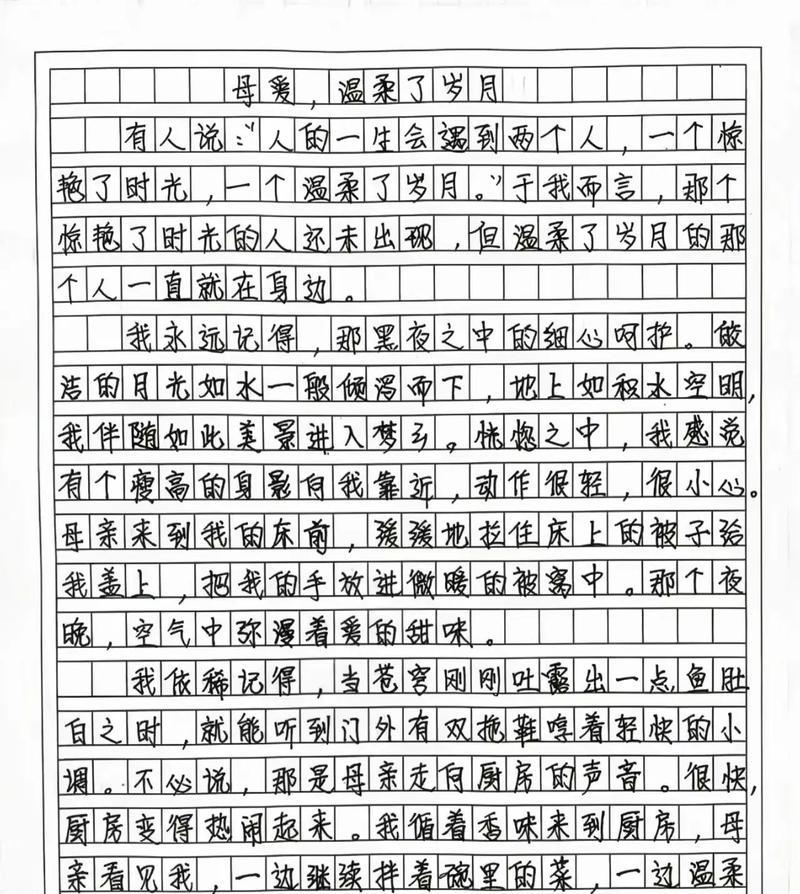 母爱，温柔了岁月
有人说：“人的一生会遇到两个人，一个惊
艳了时光，一个温柔了岁月。”于我而言，那个
惊艳了时光的人还未出现，但温柔了岁月的那
个人一直就在身边。
我永远记得，那黑夜之中的细心呵护。皎
洁的月光如水一般倾泻而下，地上如积水空明，
我伴随如此美景进入梦乡。恍惚之中，我感觉
有个瘦高的身影向我靠近，动作很轻，很小心。
母亲来到我的床前，缓缓地拉住床上的被子给
我盖上，把我的手放进微暖的被窝中。那个夜
晚，空气中弥漫着爱的甜味。
我依稀记得，当苍穹刚刚吐露出一点鱼肚
白之时，就能听到门外有双拖鞋哼着轻快的小
调。不必说，那是母亲走向厨房的声音。很快，
厨房变得热闹起来。我循着香味来到厨房，母
亲看见我，一边继续拌着碗里的菜，一边温柔